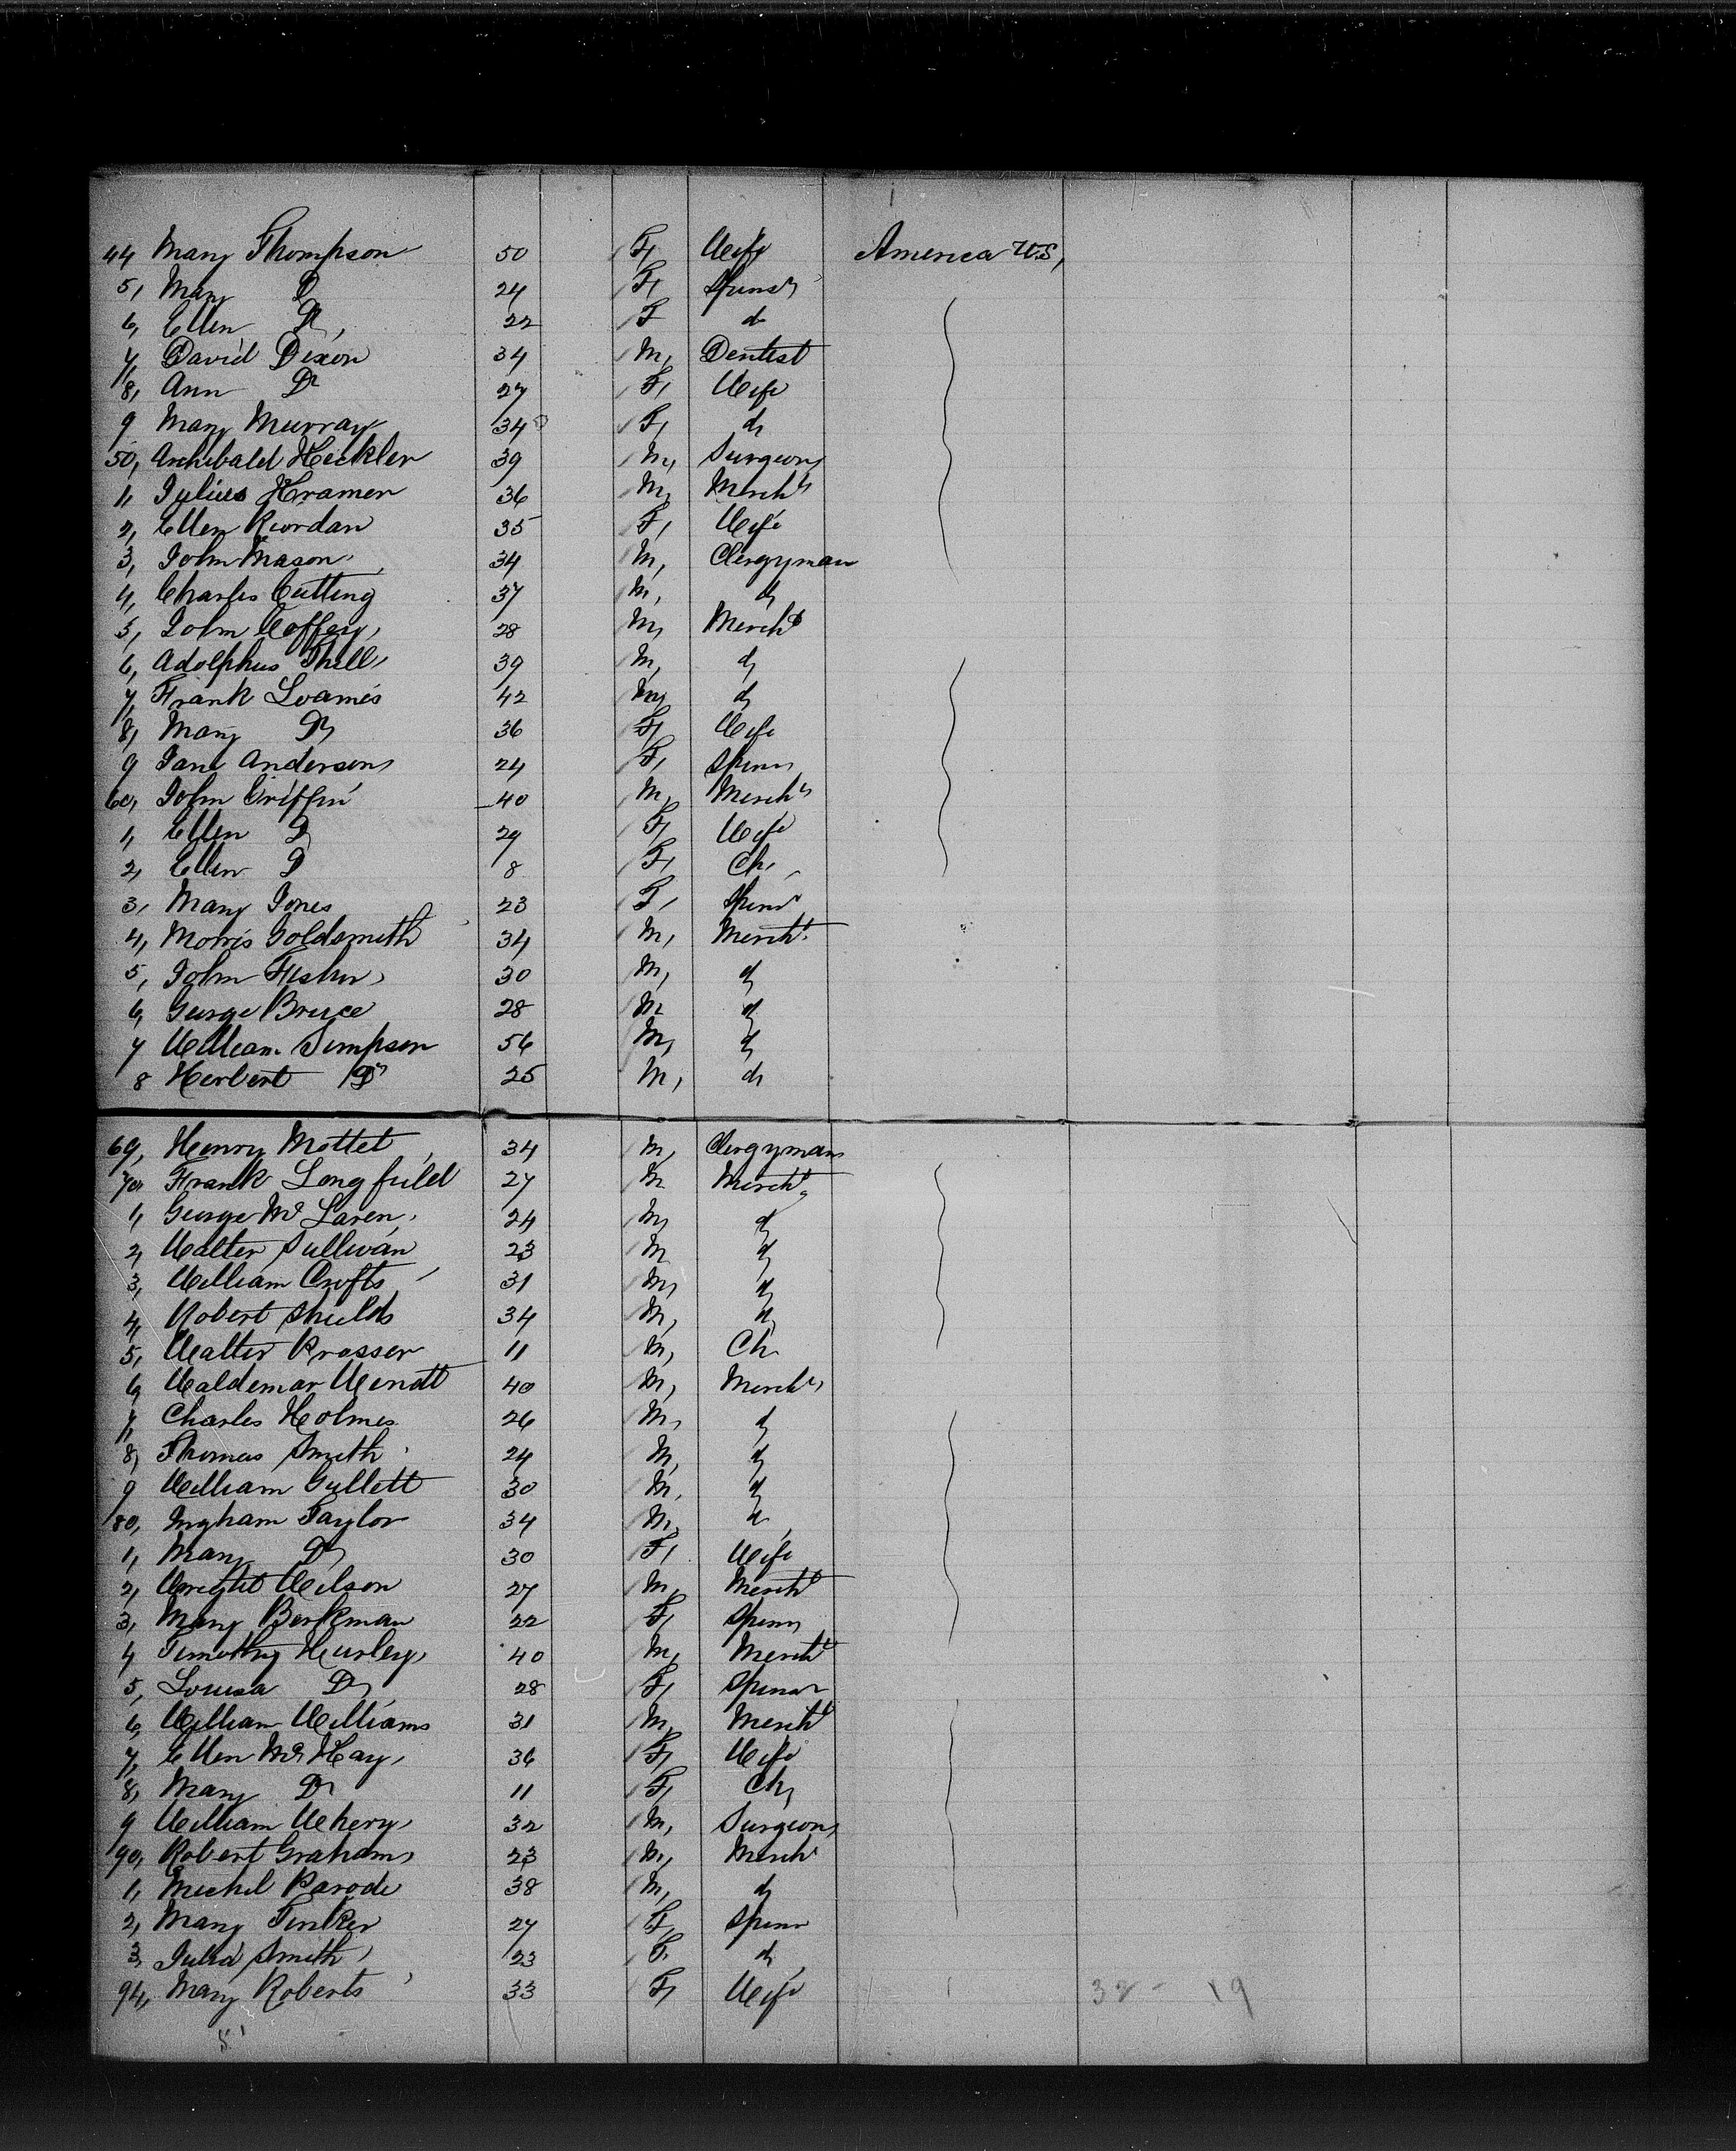 44 Mary Thompson 50 F, Wife America U.S,
5, Mary Do 24 F, Spinsr
6, Ellen Do, 22 F do
7, David Dixon 34 M, Dentist
8, Ann Do 27 F, Wife
9 Mary Murray 34 F, do
50, Archibald Heckler 39 M, Surgeon
1, Julius Kramer 36 M, Mercht
2, Ellen Riordan 35 F, Wife
3, John Mason 34 M, Clergyman
4, Charles Cutting 37 M, do
5, John Coffey, 28 M, Mercht
6, Adolphus Thill, 39 M, do
7, Frank Loames 42 M, do
8, Mary Do 36 F, Wife
9 Jane Anderson, 24 F, Spinr
60, John Griffin 40 M, Mercht
1, Ellen Do 29 F, Wife
2, Ellen Do 8 F, Ch,
3, Mary Jones 23 F, Spinr
4, Morris Goldsmith 34 M, Mercht
5, John Fisher, 30 M, do
6, George Bruce 28 M do
7 William Simpson 56 M, do
8 Herbert Do 25 M, do
69, Henry Mottet 34 M, Clergyman
70, Frank Longfield 27 M Mercht
1, George McLaren, 24 M, do
2, Walter Sullivan 23 M do
3, William Crofts 31 M, do
4, Robert Shields 34 M, do
5, Walter Prosser 11 M, Ch
6, Waldemar Wendt 40 M, Mercht
7, Charles Holmes 26 M, do
8, Thomas Smith 24 M, do
9 William Gullett 30 M, do
80, Ingham Taylor 34 M, do
1, Mary Do 30 F, Wife
2, Wright Wilson 27 M, Mercht
3, Mary Berkman 22 F, Spinr
4 Timothy Hurley, 40 M, Mercht
5, Louisa Do 28 F, Spinsr
6, William Williams 31 M, Mercht
7, Ellen McKay, 36 F, Wife
8, Mary Do 11 F, Ch,
9 William 32 M, Surgeon,
90, Robert Graham, 23 M, Mercht
1, Michel Parode 38 M, do
2, Mary Tinker 27 F, Spinr
3 Julia Smith, 23 F, do
94, Mary Roberts 33 F, Wife 32 - 19
51